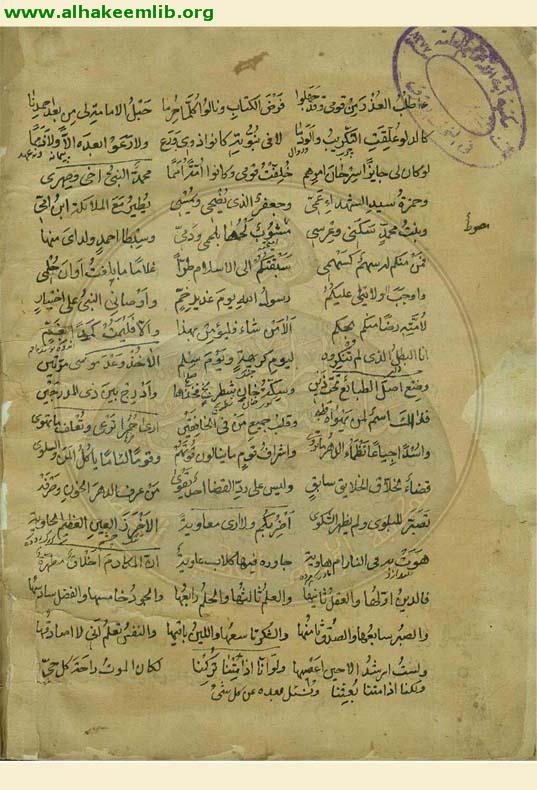 www.alhakeemlib.org
ما طلب العذر من قومي وقد جهلوا فرض الكتاب ونالوا كلما حرما حبل الامامة لي من بعد احمدنا
كالدلو علقت التكريب والوذما لا في نبوته كانوا ذوي ورع ولا رعوا بعده الا ولا ذمما
لو كان لي جايزا سرحان امرهم خلفت قومي وكانوا امة امما محمد النبي اخي وصهري
وحمزة سيد الشهداء عمي وجعفر الذي يضحي ويمسي يطير مع الملائكة ابن امي
وبنت محمد سكني وعرسي مشوب لحمها بدمي ولحمي وسبطا احمد ولداي منها
فمن منكم له سهم كسهمي سبقتكم الى الاسلام طرا غلاما ما بلغت اوان حلمي
واوجب لي ولايته عليكم رسول الله يوم غدير خم واوصاني النبي على اختيار
لامته رضا منكم بحكمي الا من شاء فليؤمن بهذا والا فليمت كمدا بغم
انا البطل الذي لم تنكروه ليوم كريهة ويوم سلم الاخذ وعد موسى مرتين
وضع اصل الطبايع تحت ذين وسكة خان شطرنج فخذها وادرج بين ذي المدرجين
فذلك اسم لمن يهواه قلبي وقلب جميع من في الخافقين ارى حمرا ترعى وتعلف ما تهوى
واسدا جياعا تظمأ الدهر ما تروى واشراف قوم ما ينالون قوتهم وقوما لئاما ياكل المن والسلوى
قضاء لخلاق الخلايق سابق وليس على رد القضا احد يقوى من عرف الدهر الخؤون وصرفه
تصبر للبلوى ولم يظهر الشكوى اضربكم ولا ارى معاوية الاخزر العين العظيم الحاوية
هوت به في النار ام هاوية جاوره فيها كلاب عاوية ان المكارم اخلاق مطهرة
فالدين اولها والعقل ثانيها والعلم ثالثها والحلم رابعها والجود خامسها والفضل سادسها
والصبر سابعها والصدق ثامنها والشكر تاسعها واللين باقيها والنفس تعلم اني لا اصادقها
ولست ارشد الا حين اعصيها ولو انا اذا متنا تركنا لكان الموت راحة كل حي
ولكنا اذا متنا بعثنا ونسئل بعده عن كل شي